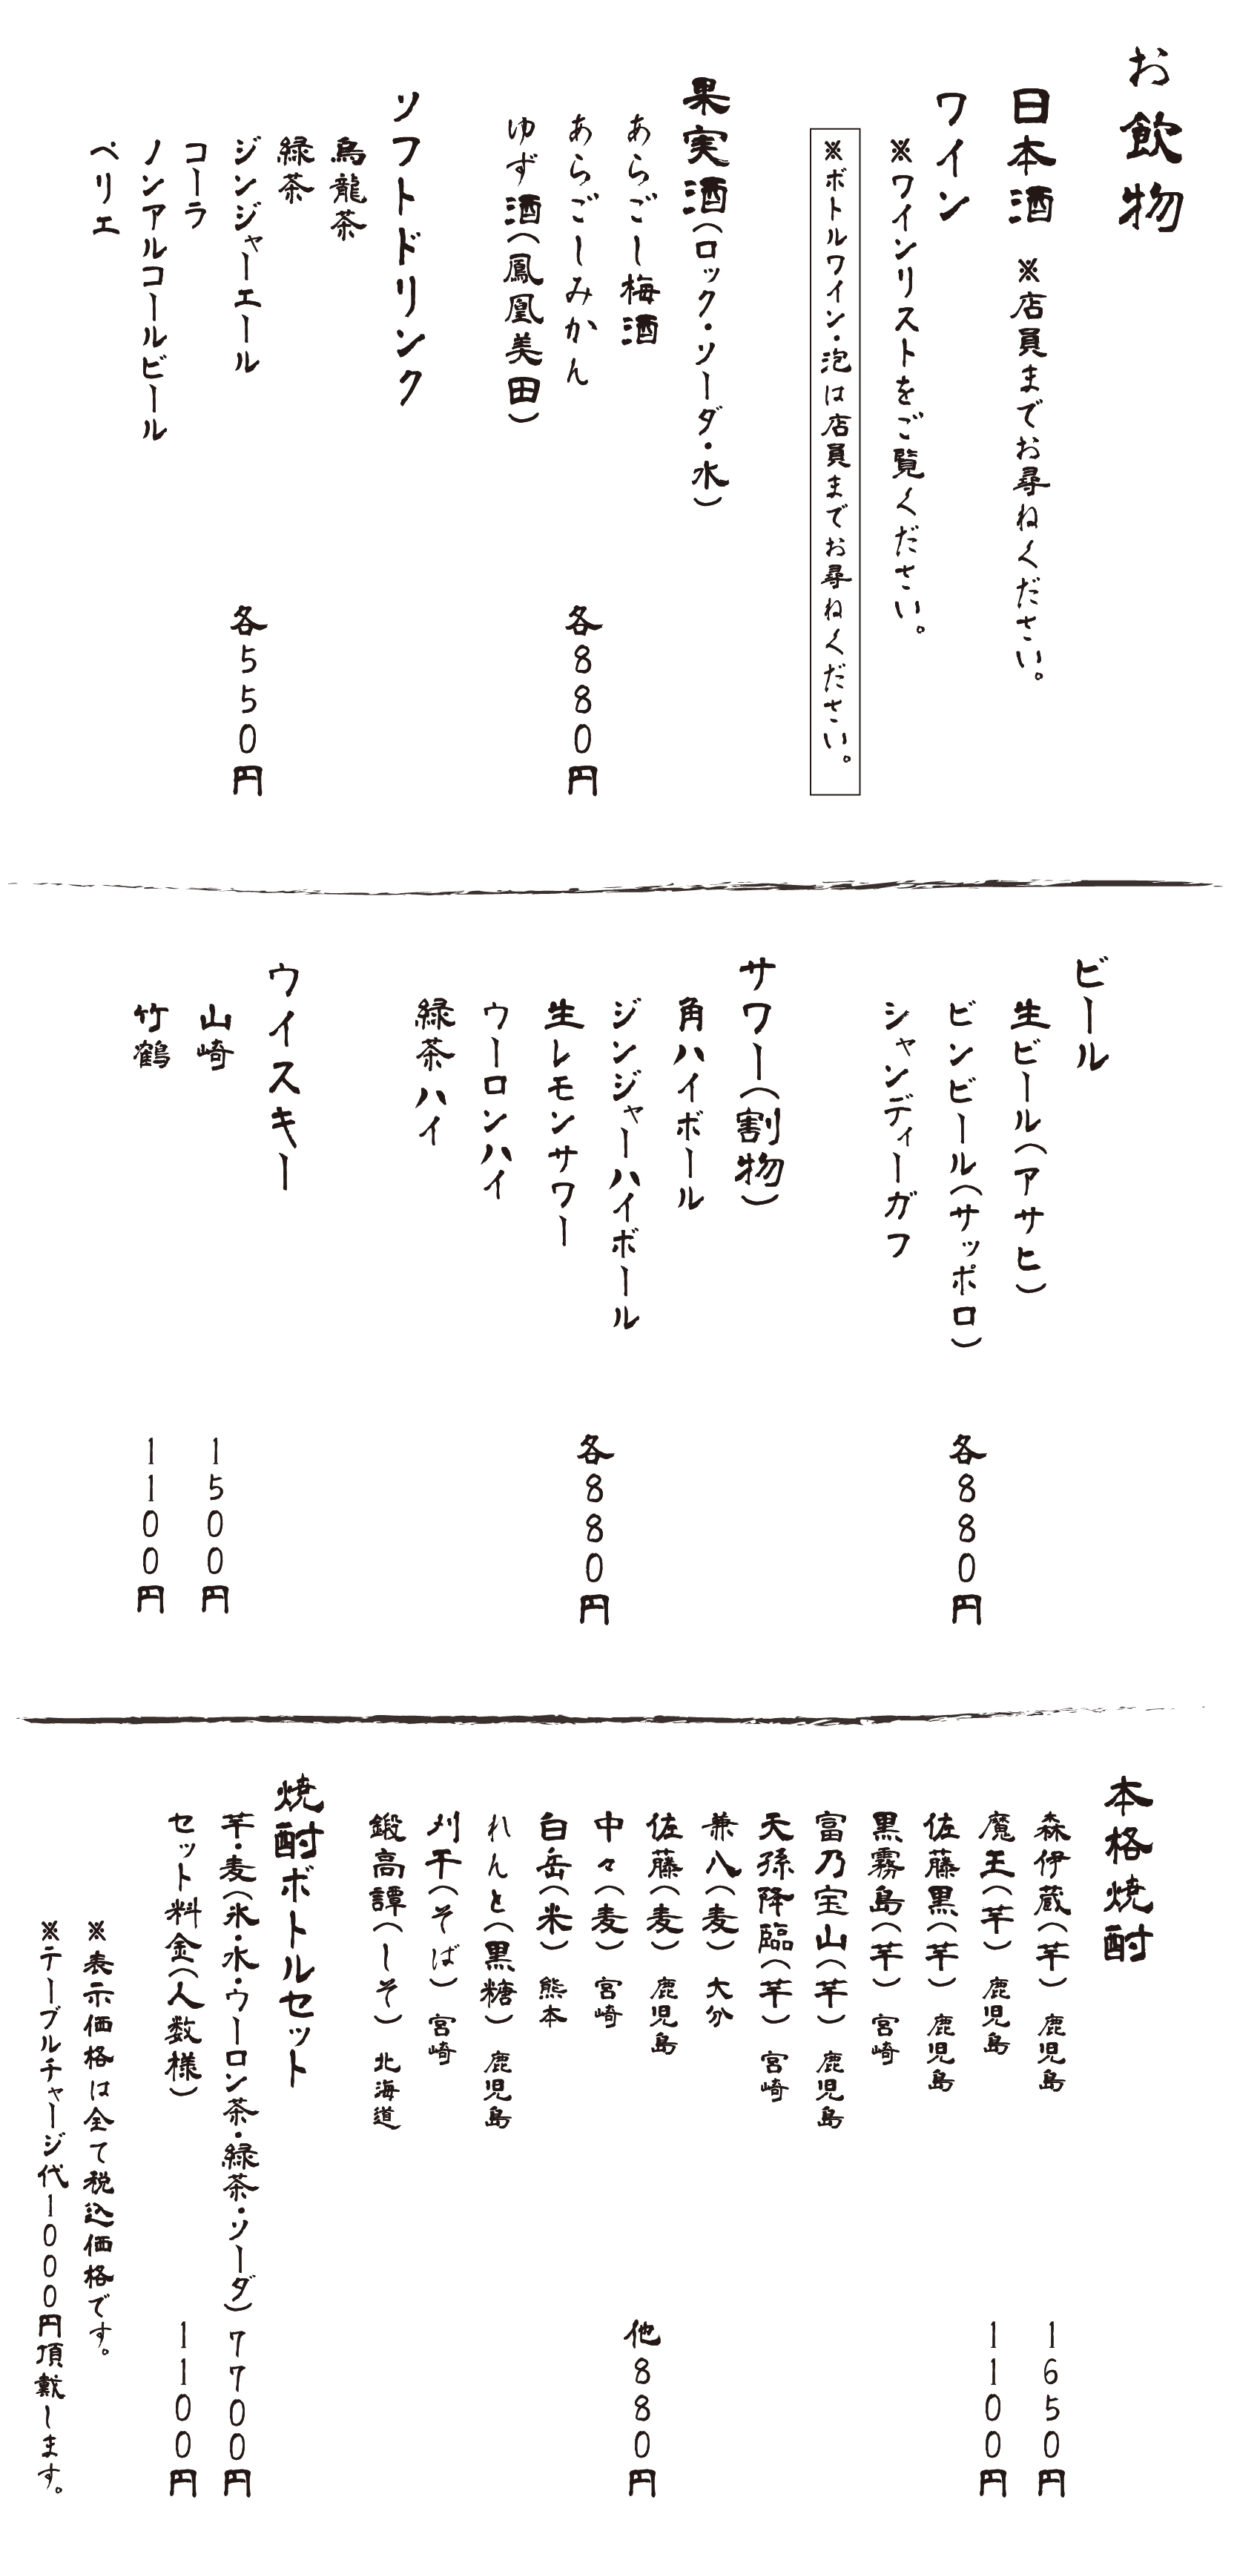 お飲物
日本酒 ※店員までお尋ねください。
ワイン
※ワインリストをご覧ください。
※ボトルワイン・泡は店員までお尋ねください。
果実酒(ロック・ソーダ・水)
あらごし梅酒
あらごしみかん
各880円
ゆず酒(鳳凰美田)
ソフトドリンク
烏龍茶
緑茶
ジンジャーエール
各550円
コーラ
ノンアルコールビール
ペリエ
ビール
生ビール(アサヒ)
ビンビール(サッポロ)
各880円
シャンディーガフ
サワー(割物)
角ハイボール
ジンジャーハイボール
各880円
生レモンサワー
ウーロンハイ
緑茶ハイ
ウイスキー
山崎 1500円
竹鶴 1100円
本格焼酎
森伊蔵(芋) 鹿児島 1650円
魔王(芋) 鹿児島 1100円
佐藤黒(芋) 鹿児島
黒霧島(芋) 宮崎
富乃宝山(芋) 鹿児島
天孫降臨(芋) 宮崎
兼八(麦) 大分
佐藤(麦) 鹿児島
他880円
中々(麦) 宮崎
白岳(米) 熊本
れんと(黒糖) 鹿児島
刈干(そば) 宮崎
鍛高譚(しそ) 北海道
焼酎ボトルセット
芋・麦(氷・水・ウーロン茶・緑茶・ソーダ) 7700円
セット料金(人数様) 1100円
※表示価格は全て税込価格です。
※テーブルチャージ代1000円頂戴します。